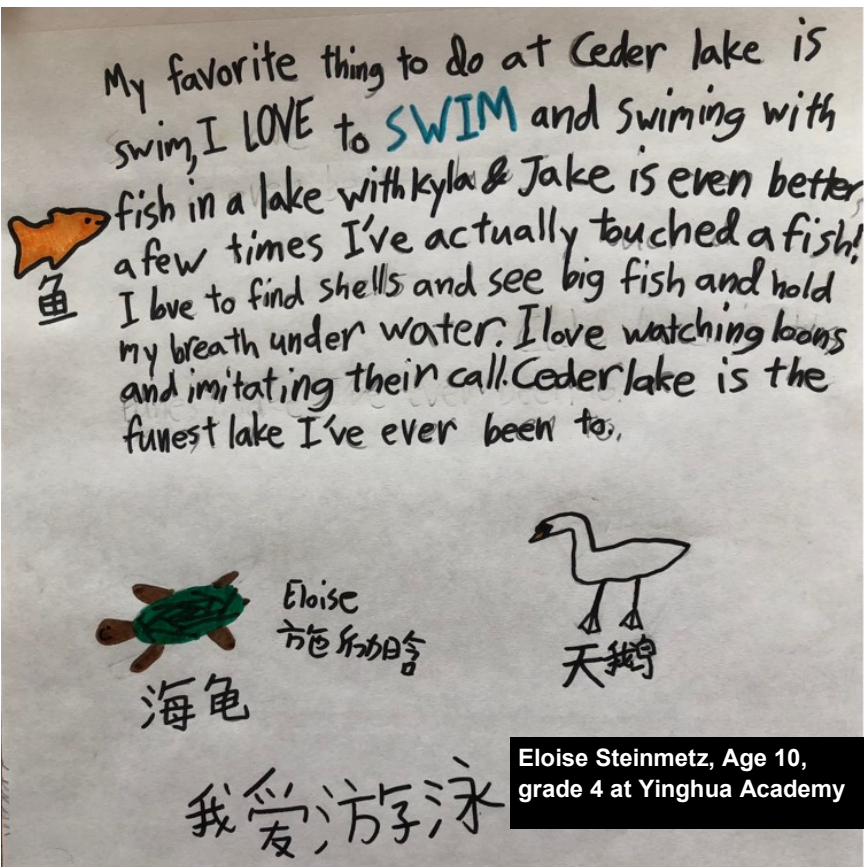 My favorite thing to do at Ceder lake is
swim, I LOVE to SWIM and swiming with
fish in a lake with kyla & Jake is even better,
a few times I've actually touched a fish!
I love to find shells and see big fish and hold
my breath under water. I love watching loons
and imitating their call. Ceder lake is the
funest lake I've ever been to.
鱼
Eloise
海龟
天鹅
我爱游泳
Eloise Steinmetz, Age 10,
grade 4 at Yinghua Academy